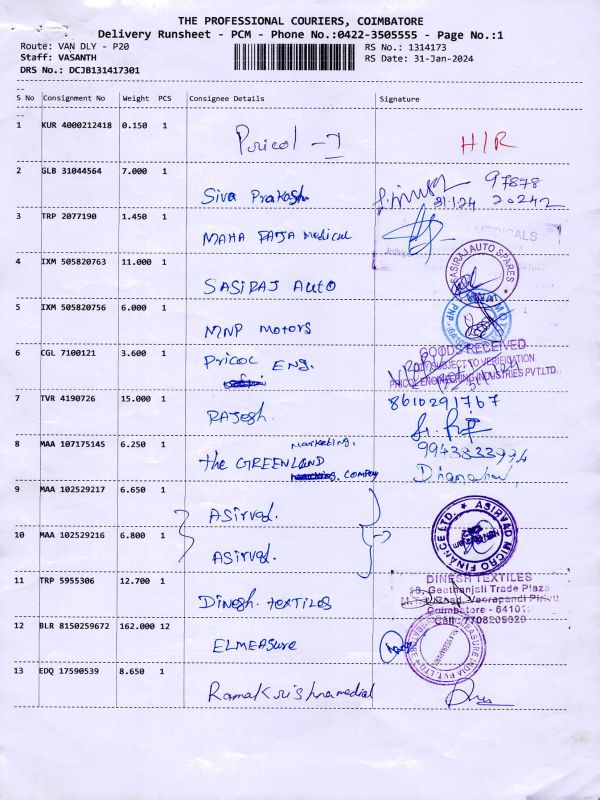 THE PROFESSIONAL COURIERS, COIMBATORE
Delivery Runsheet - PCM - Phone No.:0422-3505555 - Page No.:1
Route: VAN DLY - P20
RS No.: 1314173
Staff: VASANTH
RS Date: 31-Jan-2024
DRS No.: DCJB131417301
S No Consignment No Weight PCS Consignee Details Signature
1 KUR 4000212418 0.150 1 Pricol - I H/R
2 GLB 31044564 7.000 1 Siva Prakash. 97878
31.1.24 20242
3 TRP 2077190 1.450 1 MAHA RAJA Medical
MEDICALS
4 IXM 505820763 11.000 1 SASIRAJ Auto
SASIRAJ AUTO SPARES
5 IXM 505820756 6.000 1 MNP MOTORS
6 CGL 7100121 3.600 1 Pricol ENG.
GOODS RECEIVED
SUBJECT TO VERIFICATION
PRICOL ENGINEERING INDUSTRIES PVT.LTD.
7 TVR 4190726 15.000 1 RAJESh. 8610291767
8 MAA 107175145 6.250 1 the GREENLAND marketing. Company
9943333994
9 MAA 102529217 6.650 1 ASirvad.
10 MAA 102529216 6.800 1 ASirvad.
ASIRVAD MICRO FINANCE LTD.
11 TRP 5955306 12.700 1 Dinesh. textiles
DINESH TEXTILES
Geethanjali Trade Plaza
Road, Veerapandi Pirivu
Coimbatore - 6410
Call: 7708209029
12 BLR 8150259672 162.000 12 ELMEASURE
13 EDQ 17590539 8.650 1 Ramakrishnamedial